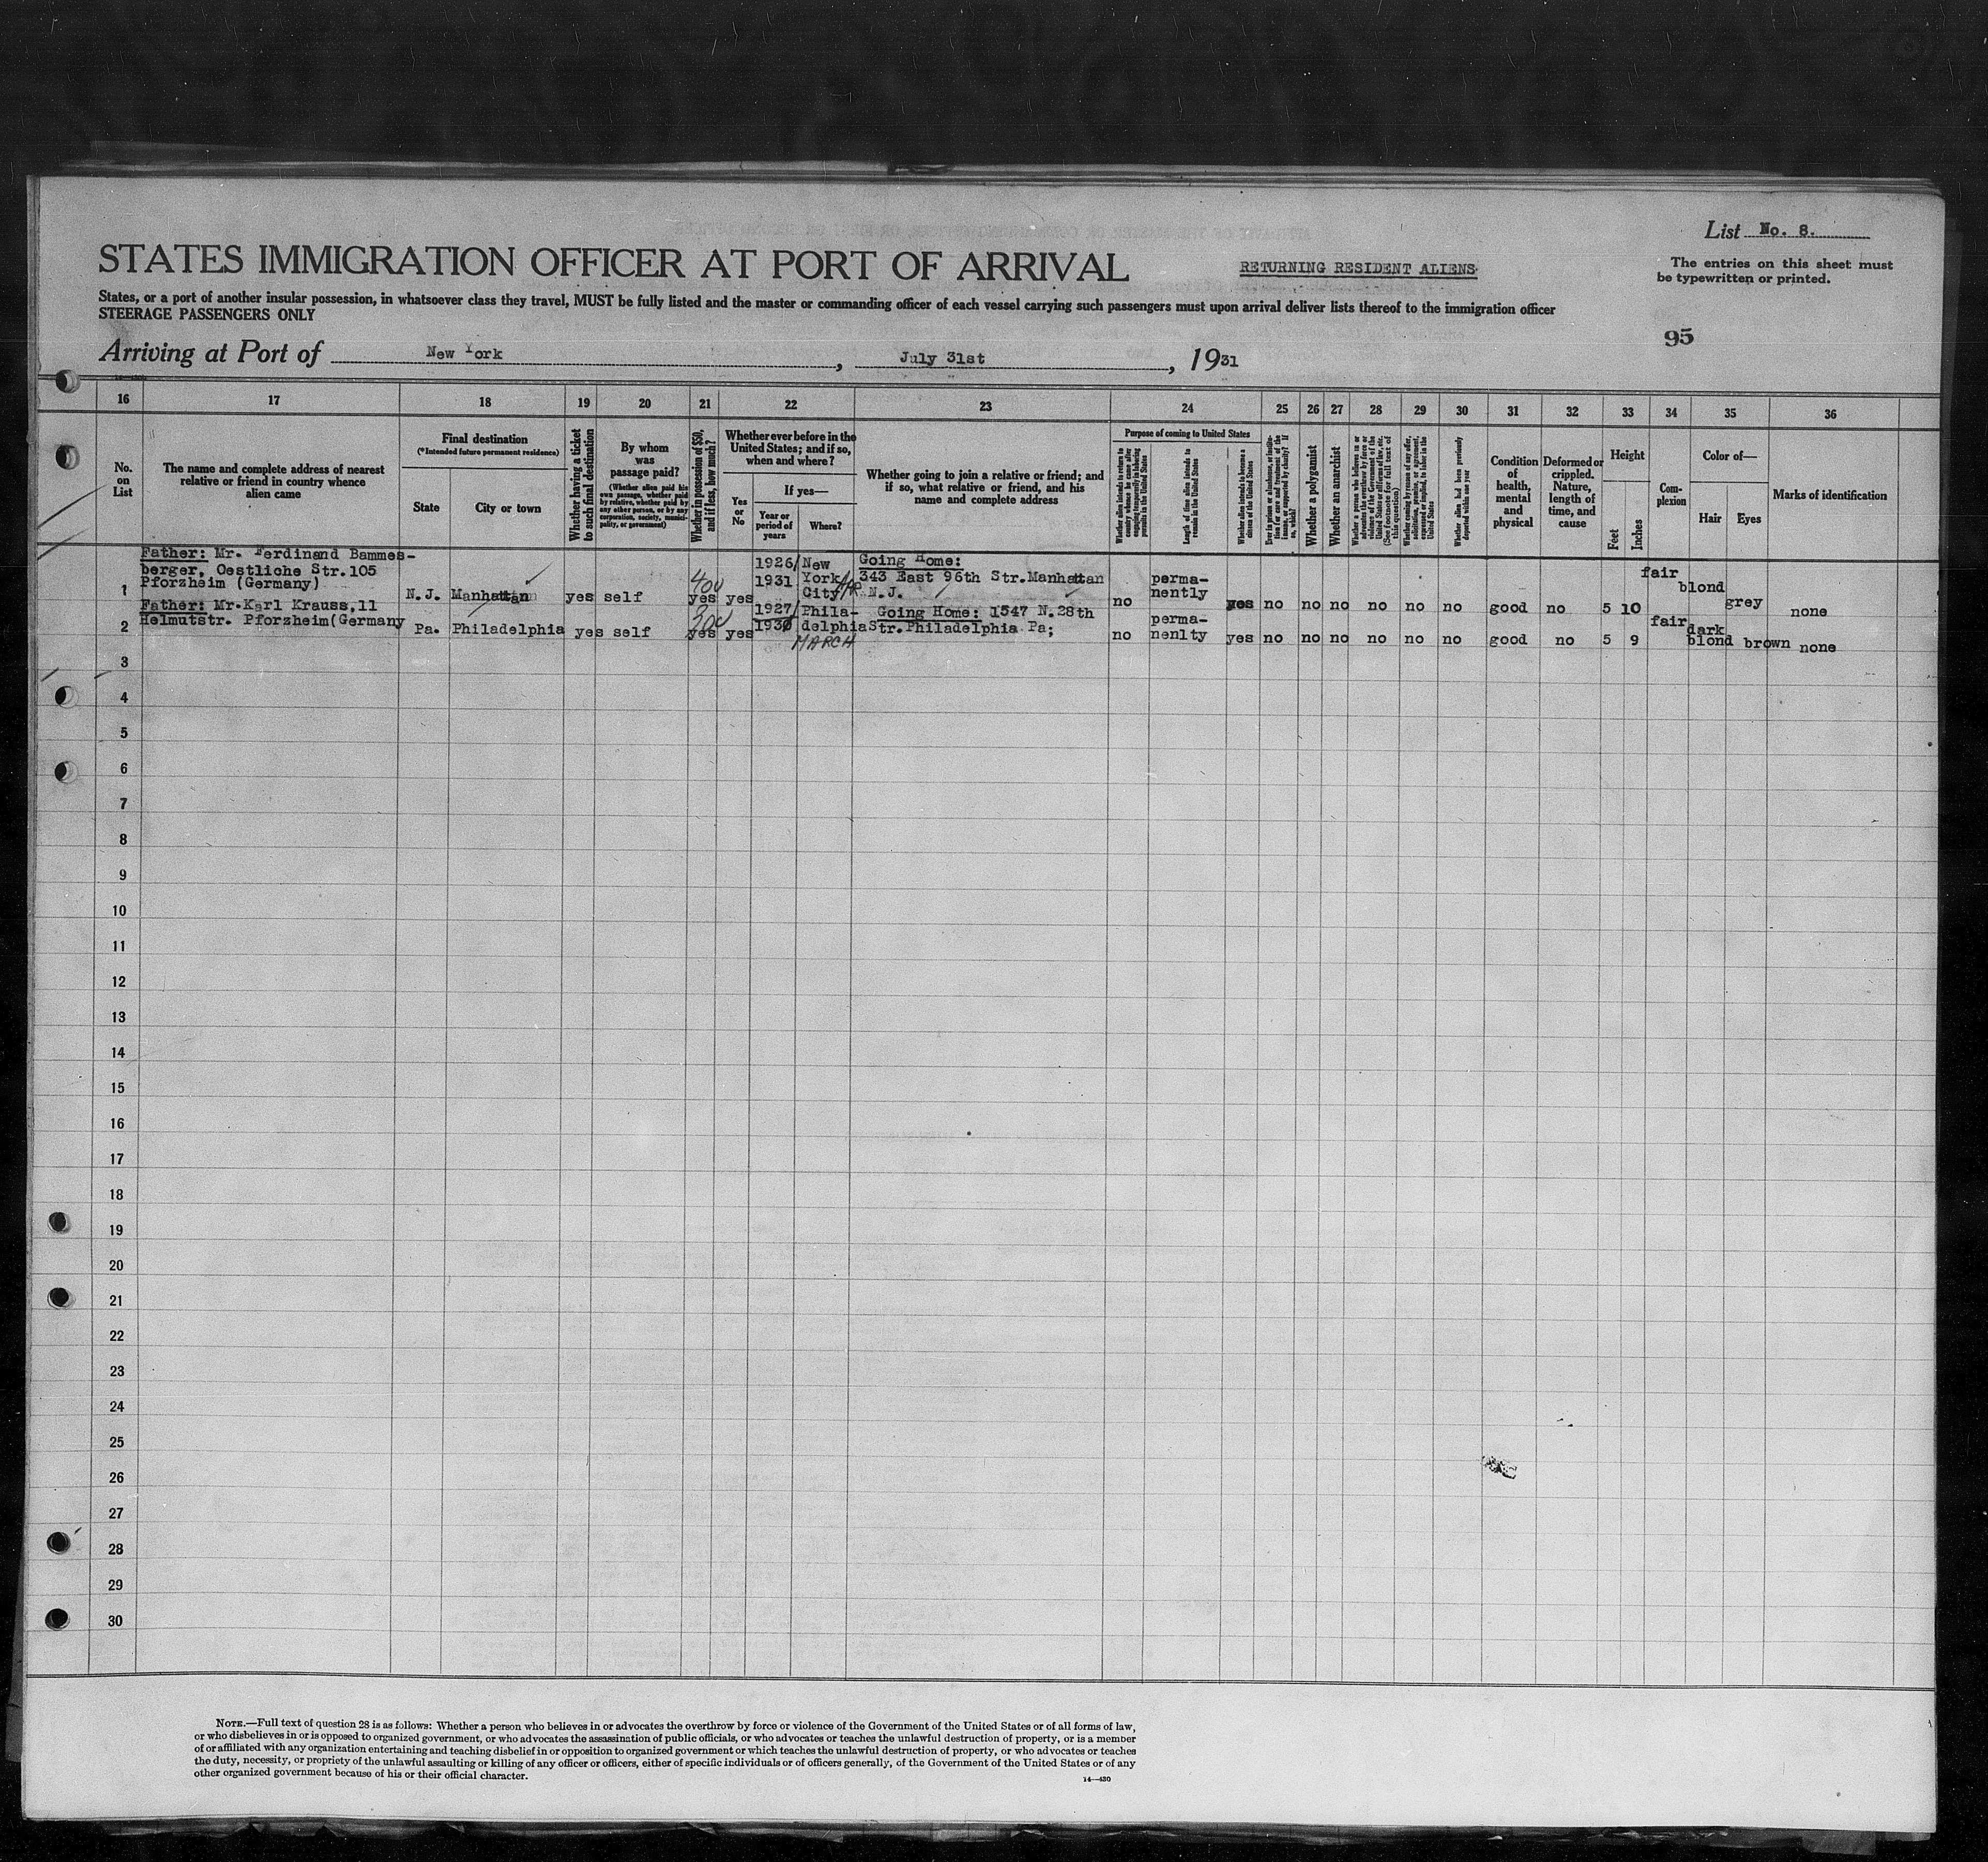 List No. 8.
STATES IMMIGRATION OFFICER AT PORT OF ARRIVAL
RETURNING RESIDENT ALIENS
The entries on this sheet must
be typewritten or printed.
States, or a port of another insular possession, in whatsoever class they travel, MUST be fully listed and the master or commanding officer of each vessel carrying such passengers must upon arrival deliver lists thereof to the immigration officer
STEERAGE PASSENGERS ONLY
95
Arriving at Port of New York, July 31st, 1931
16 17 18 19 20 21 22 23 24 25 26 27 28 29 30 31 32 33 34 35 36
No.
on
List
The name and complete address of nearest
relative or friend in country whence
alien came
Final destination
(*Intended future permanent residence)
State
City or town
Whether having a ticket
to such final destination
By whom
was
passage paid?
(Whether alien paid his
own passage, whether paid
by relative, whether paid by
any other person, or by any
corporation, society, munici-
pality, or government)
Whether in possession of $50,
and if less, how much?
Whether ever before in the
United States; and if so,
when and where?
Yes
or
No
If yes—
Year or
period of
years
Where?
Whether going to join a relative or friend; and
if so, what relative or friend, and his
name and complete address
Purpose of coming to United States
Length of time alien intends to
remain in the United States
Whether alien intends to become a
citizen of the United States
Whether a polygamist
Whether an anarchist
Whether alien had been previously
deported within one year
Condition
of
health,
mental
and
physical
Deformed or
crippled.
Nature,
length of
time, and
cause
Height
Feet
Inches
Com-
plexion
Color of—
Hair
Eyes
Marks of identification
1
Father: Mr. Ferdinand Bammes-
berger, Oestliche Str.105
Pforzheim (Germany)
N.J. Manhattan
yes self
400
yes yes
1926/
1931
New
York/
City
Going Home:
343 East 96th Str.Manhattan
N.J.
no
perma-
nently
yes no no no no no no good no 5 10
fair
blond
grey
none
2
Father: Mr.Karl Krauss,11
Helmutstr. Pforzheim(Germany
Pa. Philadelphia yes self
yes yes
1927/
1930
Phila-
delphia
MARCH
Going Home: 1547 N.28th
Str.Philadelphia Pa;
no
perma-
nenlty
yes no no no no no no good no 5 9
fair
dark
blond
brown
none
3
4
5
6
7
8
9
10
11
12
13
14
15
16
17
18
19
20
21
22
23
24
25
26
27
28
29
30
NOTE.—Full text of question 28 is as follows: Whether a person who believes in or advocates the overthrow by force or violence of the Government of the United States or of all forms of law,
or who disbelieves in or is opposed to organized government, or who advocates the assassination of public officials, or who advocates or teaches the unlawful destruction of property, or is a member
of or affiliated with any organization entertaining and teaching disbelief in or opposition to organized government or which teaches the unlawful destruction of property, or who advocates or teaches
the duty, necessity, or propriety of the unlawful assaulting or killing of any officer or officers, either of specific individuals or of officers generally, of the Government of the United States or of any
other organized government because of his or their official character.
14—430